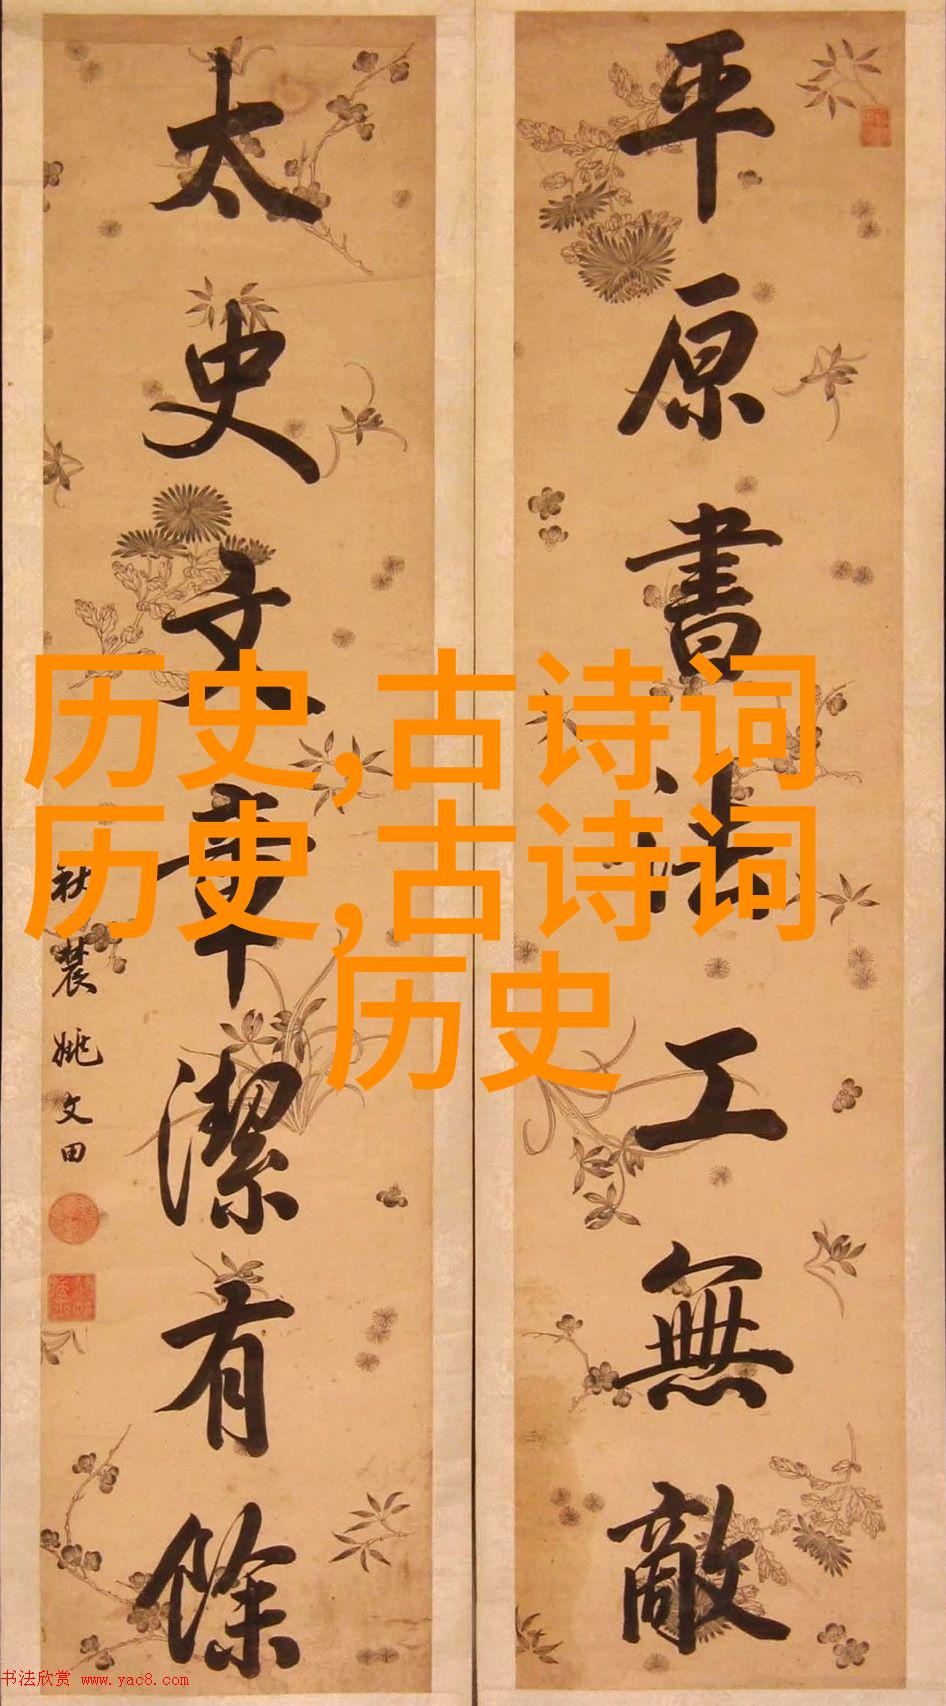 平原書法工無敵
太史文章潔有餘
秋農姚文田
历史,古诗词
历史,古诗词
历史
书法欣赏 www.yac8.com